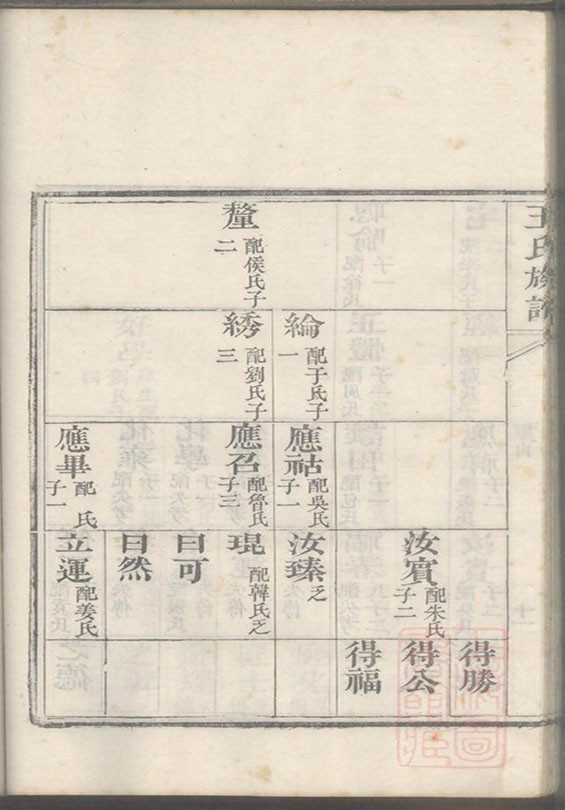 王氏族譜
釐 配侯氏子二
綸 配于氏子一
綉 配劉氏子三
應祜 配吳氏子一
應召 配魯氏子三
應畢 配 氏子一
汝賓 配朱氏子二
汝臻 乏
琨 配韓氏乏
曰可
曰然
立運 配姜氏
得勝
得公
得福